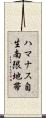 ハマナス自
生南限地帯